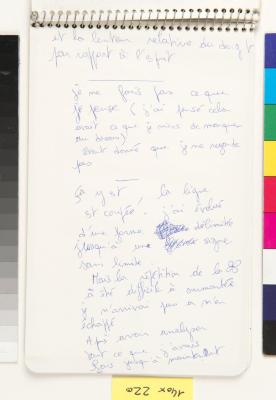 et la lenteur relative du doigt
par rapport à l'esprit
je ne fais pas ce que
je pense (j'ai pensé cela
avant ce que je viens de marquer
au dessus)
étant donné que je ne regarde
pas
ça y est la ligne
est coupée! j'ai évolué
d'une forme délimitée
jusqu'à une signe
sans limite.
Mais la répétition de la
a été difficile à surmonter
je n'arrivais pas à m'en
échapper
Après avoir analysé
tout ce que j'avais
jusqu'à maintenant
140x 220